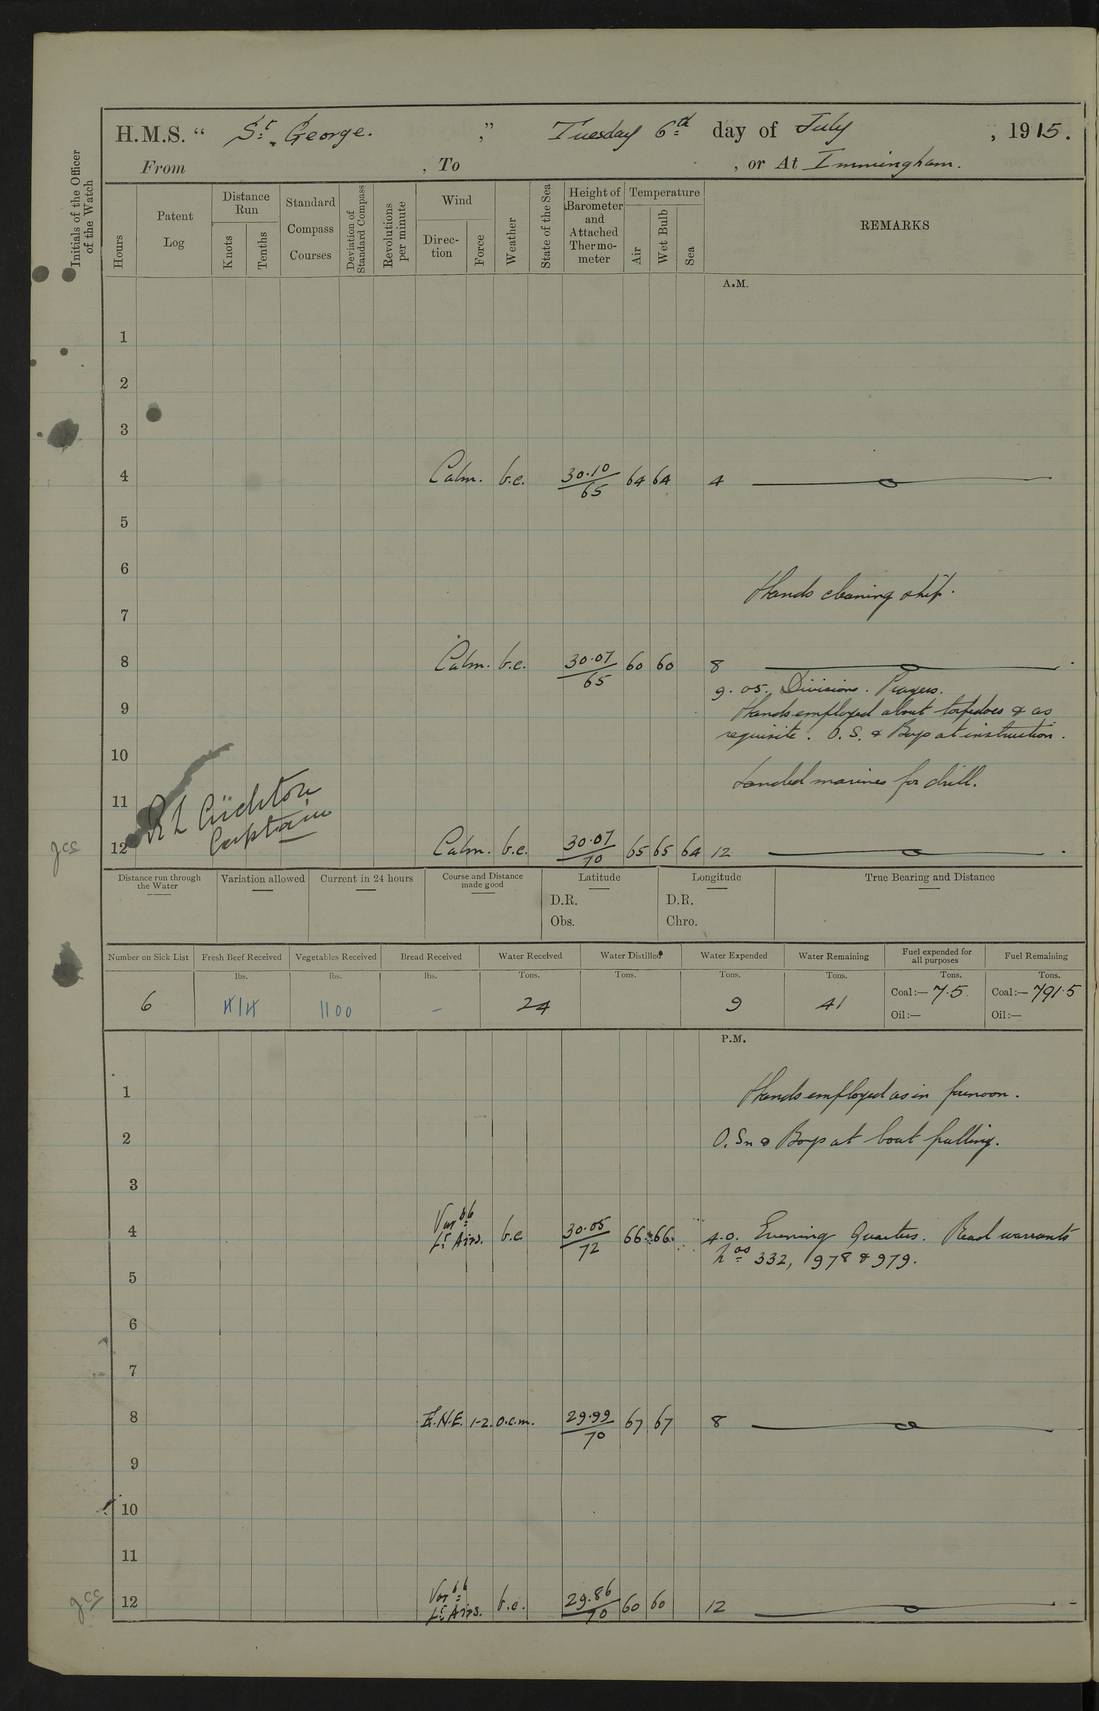 H.M.S. " St. George. ," Tuesday 6th day of July , 1915.
From , To , or At Immingham.
Initials of the Officer of the Watch
Hours
Patent Log
Distance Run
Knots
Tenths
Standard Compass Courses
Deviation of Standard Compass
Revolutions per minute
Wind
Direction
Force
Weather
State of the Sea
Height of Barometer and Attached Thermometer
Temperature
Air
Wet Bulb
Sea
REMARKS
A.M.
1
2
3
4 Calm. b.c. 30.10/65 64 64 4
5
6
Hands cleaning ship.
7
8 Calm. b.c. 30.07/65 60 60 8
9.05. Divisions. Prayers.
9 Hands employed about torpedoes & as
requisite. O.S. & Boys at instruction.
10
Landed marines for drill.
11
Captain
12 Calm. b.c. 30.07/70 65 65 64 12
Distance run through the Water
Variation allowed
Current in 24 hours
Course and Distance made good
Latitude
D.R.
Obs.
Longitude
D.R.
Chro.
True Bearing and Distance
Number on Sick List
Fresh Beef Received
Vegetables Received
Bread Received
Water Received
Water Distilled
Water Expended
Water Remaining
Fuel expended for all purposes
Fuel Remaining
lbs. lbs. lbs. Tons. Tons. Tons. Tons. Tons. Tons.
6 1100 - 24 9 41 Coal:— 7.5 Coal:— 791.5
Oil:— Oil:—
P.M.
1 Hands employed as in forenoon.
2 O. Sn & Boys at boat pulling.
3
4 Varble Lt Airs. b.c 30.05/72 66 66 4.0. Evening Quarters. Read warrants
Nos 332, 978 & 979.
5
6
7
8 E.N.E. 1-2. o.c.m. 29.99/70 67 67 8
9
10
11
12 Varble Lt Airs. b.c. 29.86/70 60 60 12